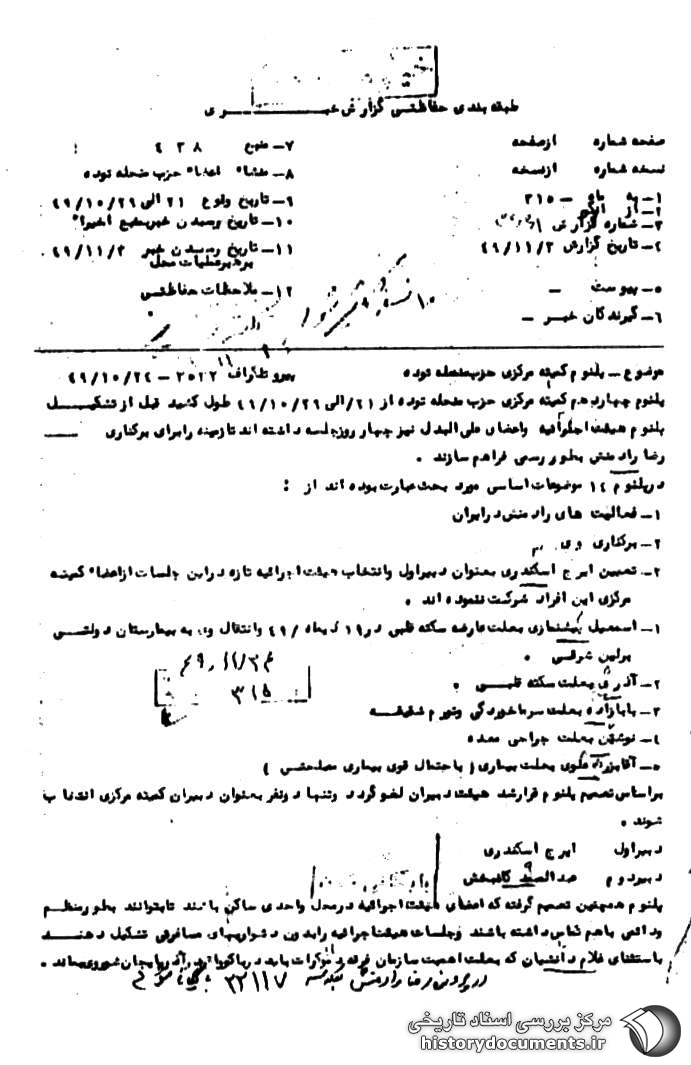 طبقه بندی حفاظتی گزارش خبری
صفحه شماره ازصفحه
نسخه شماره ازنسخه
۱- به ۳۱۵
۲- از
۳- شماره گزارش
۴- تاریخ گزارش ۴۹/۱۱/۳
۵- پیوست -
۶- گیرندگان خبر -
۷- منبع ۴۳۸
۸- منشاء اعضاء حزب منحله توده
۹- تاریخ وقوع ۲۱ الی ۴۹/۱۰/۲۶
۱۰- تاریخ رسیدن خبربمنبع اخیرا"
۱۱- تاریخ رسیدن خبر ۴۹/۱۱/۲
برهبرعملیات محل
۱۲- ملاحظات حفاظتی
موضوع - پلنوم کمیته مرکزی حزب منحله توده پیرو تلگراف ۳۵۲۲ - ۴۹/۱۰/۲۴
پلنوم چهاردهم کمیته مرکزی حزب منحله توده از ۲۱/الی ۴۹/۱۰/۲۶ طول کشید قبل از تشکیل
پلنوم هیئت اجرائیه واعضای علی البدل نیز چهار روزجلسه داشته اند تازمینه رابرای برکناری
رضا رادمنش بطور رسمی فراهم سازند .
درپلنوم ۱۴ موضوعات اساسی مورد بحث عبارت بوده اند از :
۱- فعالیت های رادمنش درایران
۲- برکناری وی
۳- تعیین ایرج اسکندری بعنوان دبیراول وانتخاب هیئت اجرائیه تازه دراین جلسات ازاعضاء کمیته
مرکزی این افراد شرکت ننموده اند .
۱- اسمعیل پیشنمازی بعلت عارضه سکته قلبی در ۱۹ دیماه /۴۹ وانتقال وی به بیمارستان دولتی
برلین شرقی .
۴۹/۱۱/۲۴
۳۱۵
۲- آذری بعلت سکته قلبی .
۳- بابازاده بعلت سرماخوردگی وتورم شقیقه
۴- نوشین بعلت جراحی معده
۵- آقابزرگ علوی بعلت بیماری ( باحتمال قوی بیماری مصلحتی )
براساس تصمیم پلنوم قرارشد هیئت دبیران لغو گردد وتنها دونفر بعنوان دبیران کمیته مرکزی انتخاب
شوند .
دبیراول ایرج اسکندری
دبیردوم عبدالصمد کامبخش
پلنوم همچنین تصمیم گرفته که اعضای هیئت اجرائیه درمحل واحدی ساکن باشند تابتوانند بطورمنظم
ودائمی باهم تماس داشته باشند وجلسات هیئت اجرائیه رابدون دشواریهای مسافرتی تشکیل دهند
باستثنای غلام دانشیان که بعلت اهمیت سازمان فرقه دموکرات باید در باکو آذربایجان شوروی بماند .
در پرونده رضا رادمنش ۳۲۱۱۷
مرکز بررسی اسناد تاریخی
historydocuments.ir